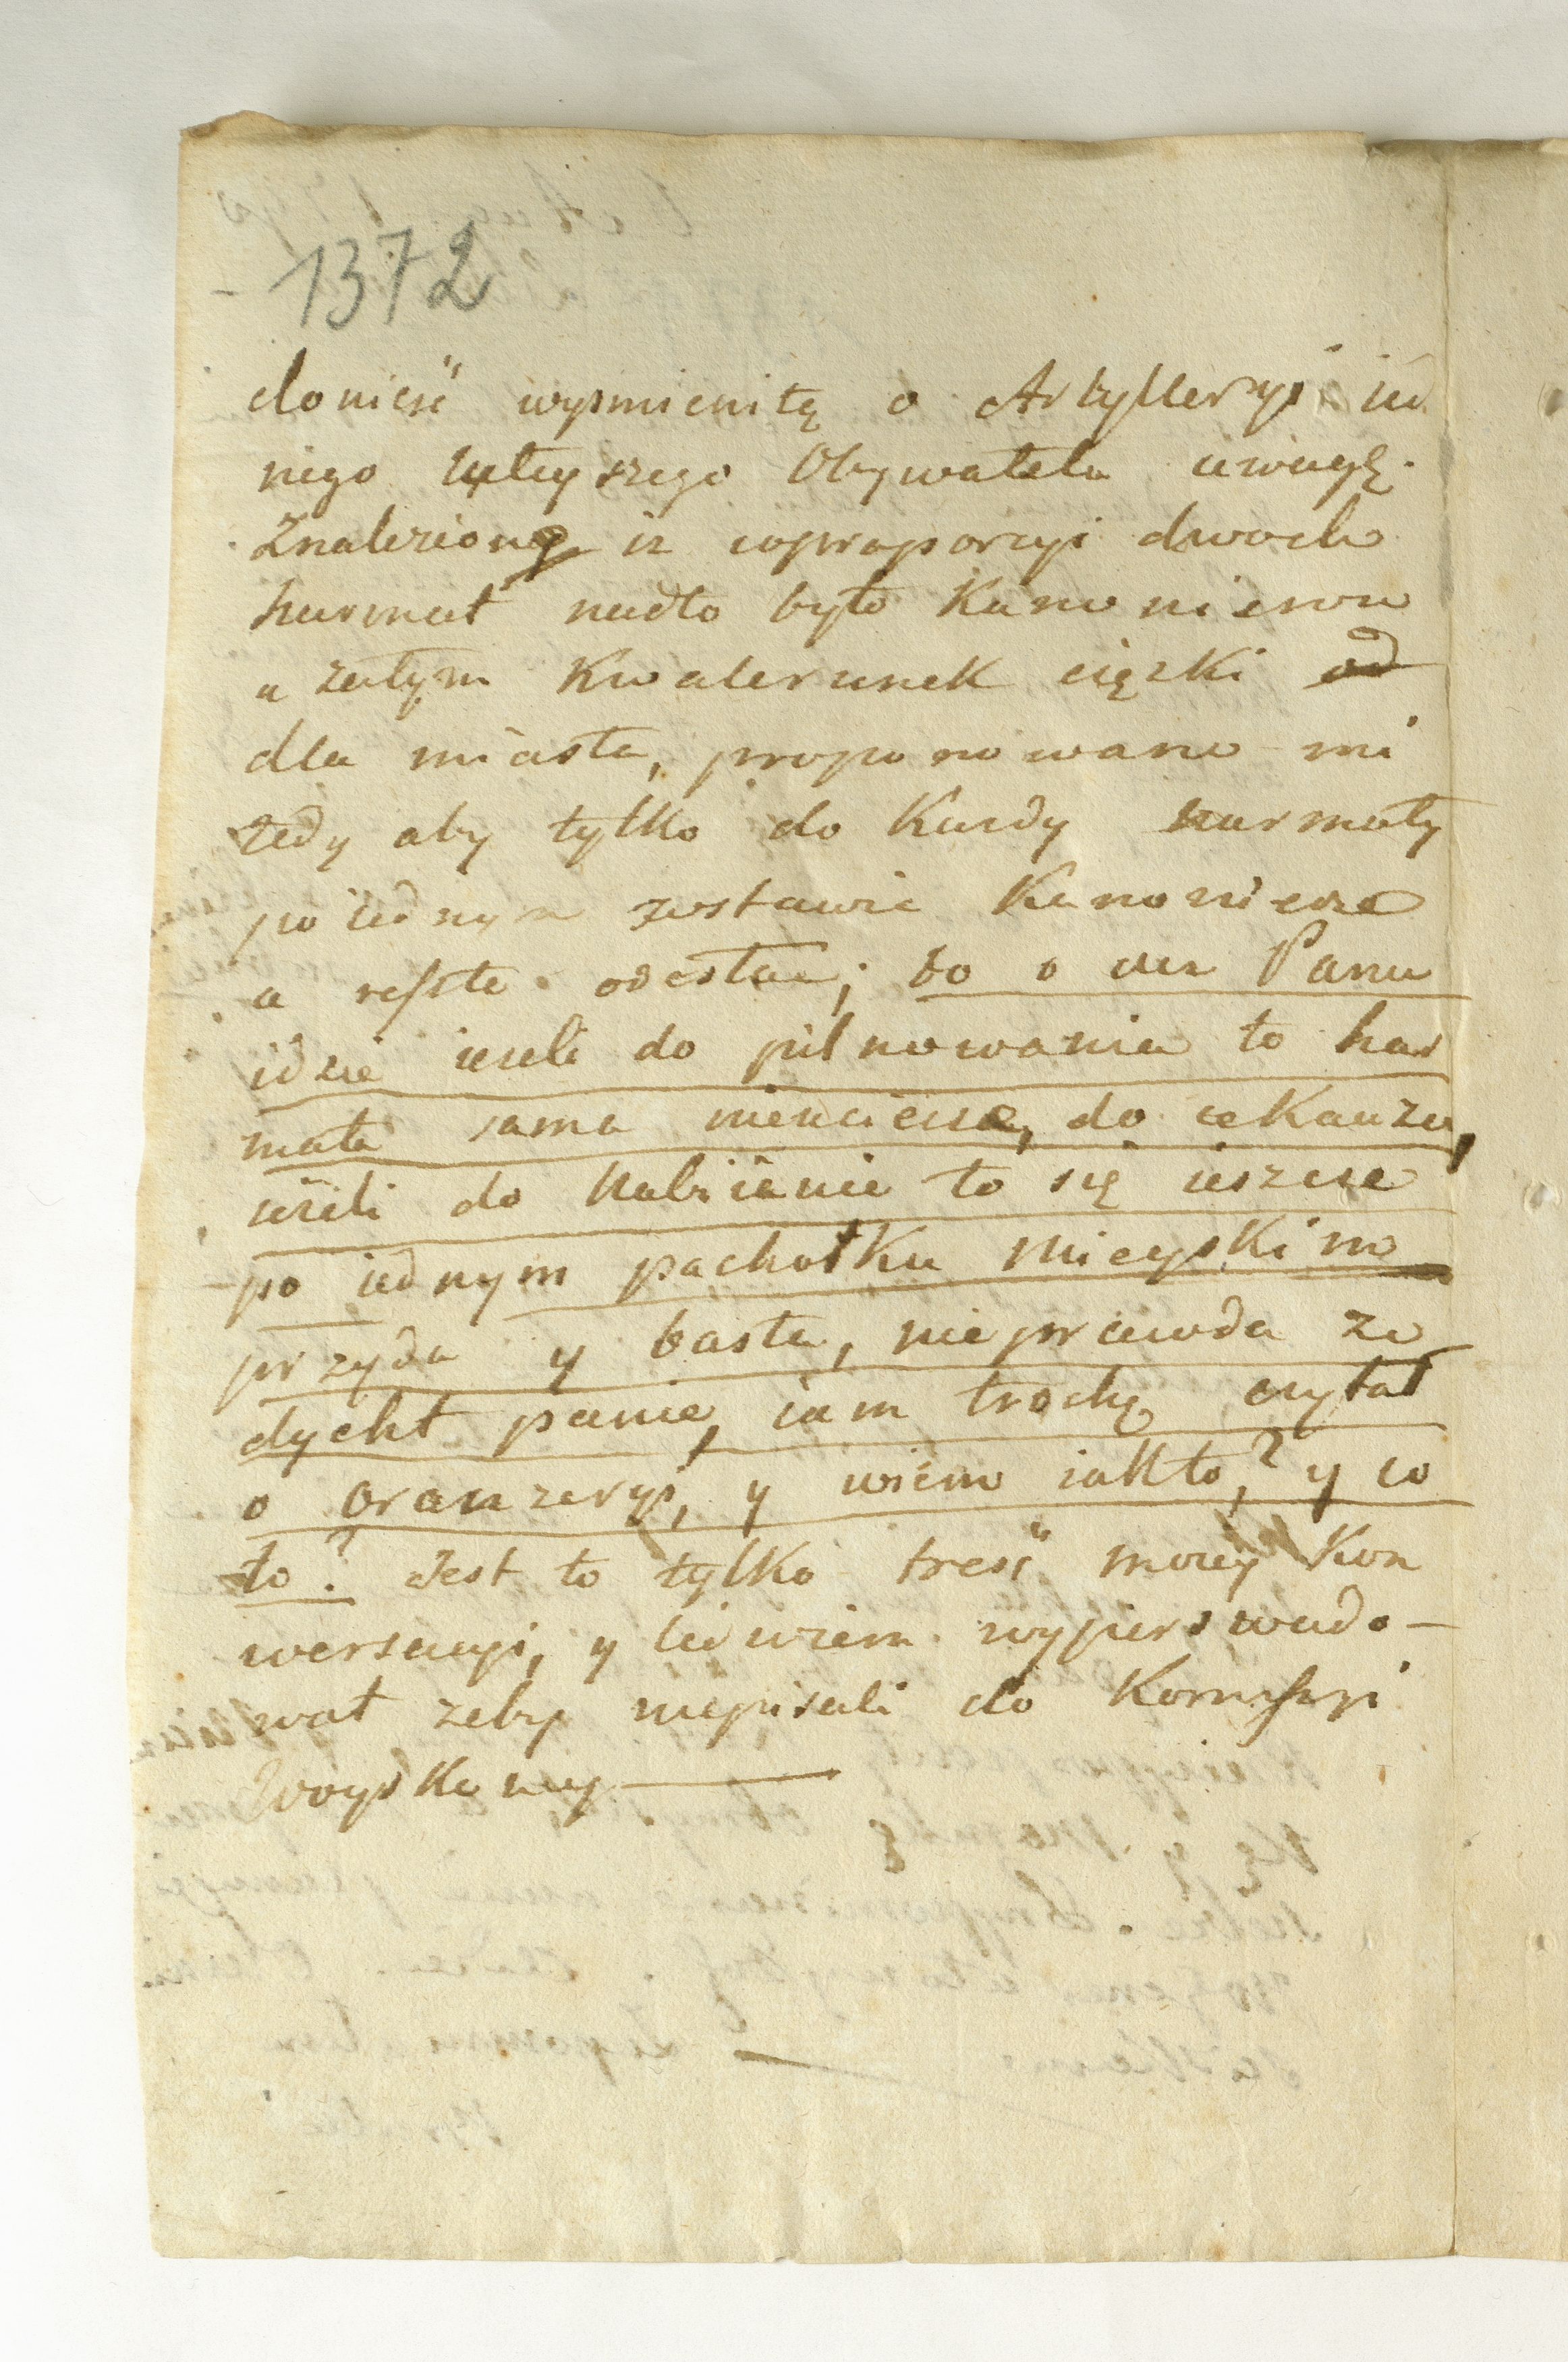 1372
donieść wyśmienitą o Artylleryi ied
nego tuteyszego Obywatela uwagę.
Znaleziono iż coproporcyi dwoch
harmat nadto było Kanonierow
a zatym Kwaterunek cięzki od
dla miasta, proponowano mi
tedy aby tylko do Kazdy harmaty
po iednym zostawić Kanonierze
a resztę odesłać; bo o coz Panu
idzie ieseli do pilnowania to har
mata sama nieuciecze, do cekauzu,
ieseli do nabiiania to się ieszcze
po iednym pachołku Mieyskim
przyda y basta, nieprawda ze
dycht panie, iam trochę czytał
o oranzeryi, y wiem iakto? y co
to? Jest to tylko treść moiey Kon
wersacyi, y ledwiem wyperswado-
wał zeby niepisali do Komissyi
Woyskowey